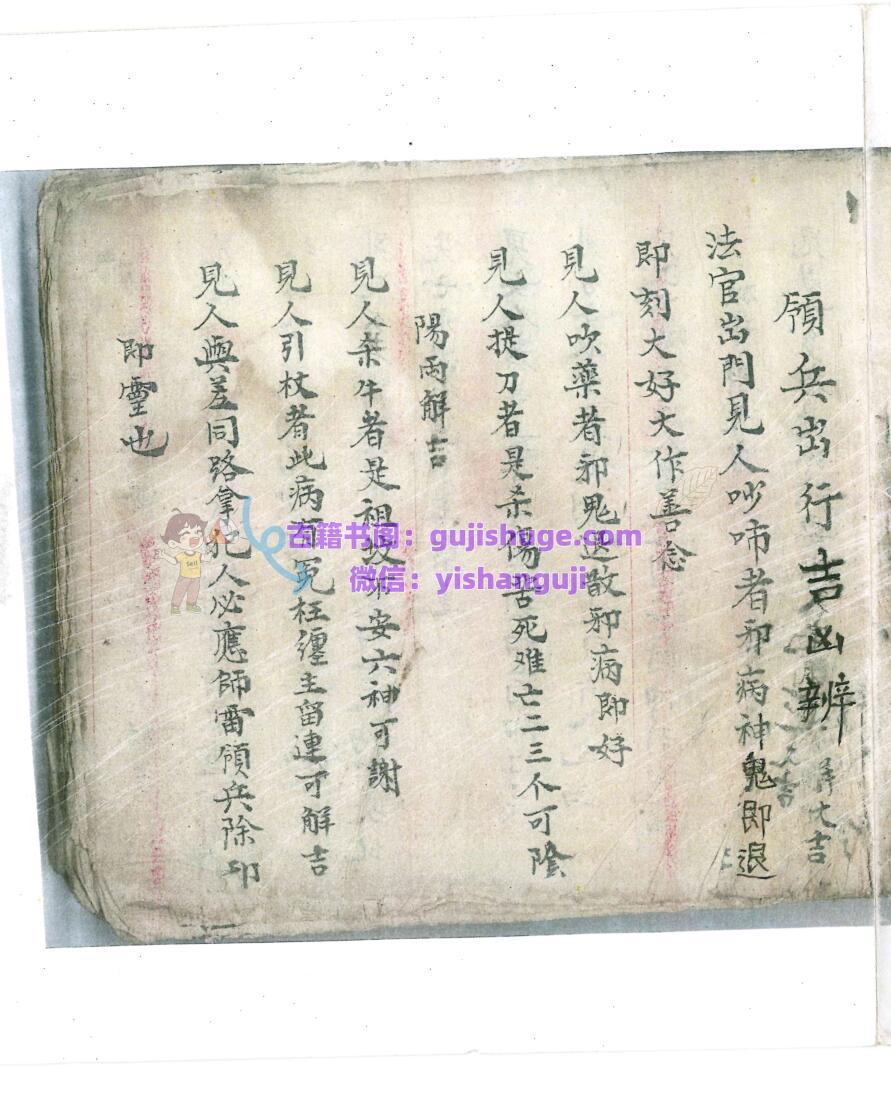 領兵出行吉凶辨
法官出門見人吵啼者邪病神鬼即退
即刻大好大作善念
見人吹藥者邪鬼退散邪病即好
見人提刀者是杀傷苦死难亡二三个可陰
陽両解吉
見人杀牛者是祖坟不安六神可謝
見人引杖者此病有冤枉纏主留連可解吉
見人與差同路拿犯人必應師雷領兵除邪
即靈也
大吉
古籍书阁：gujishuge.com
微信：yishanguji
Sell